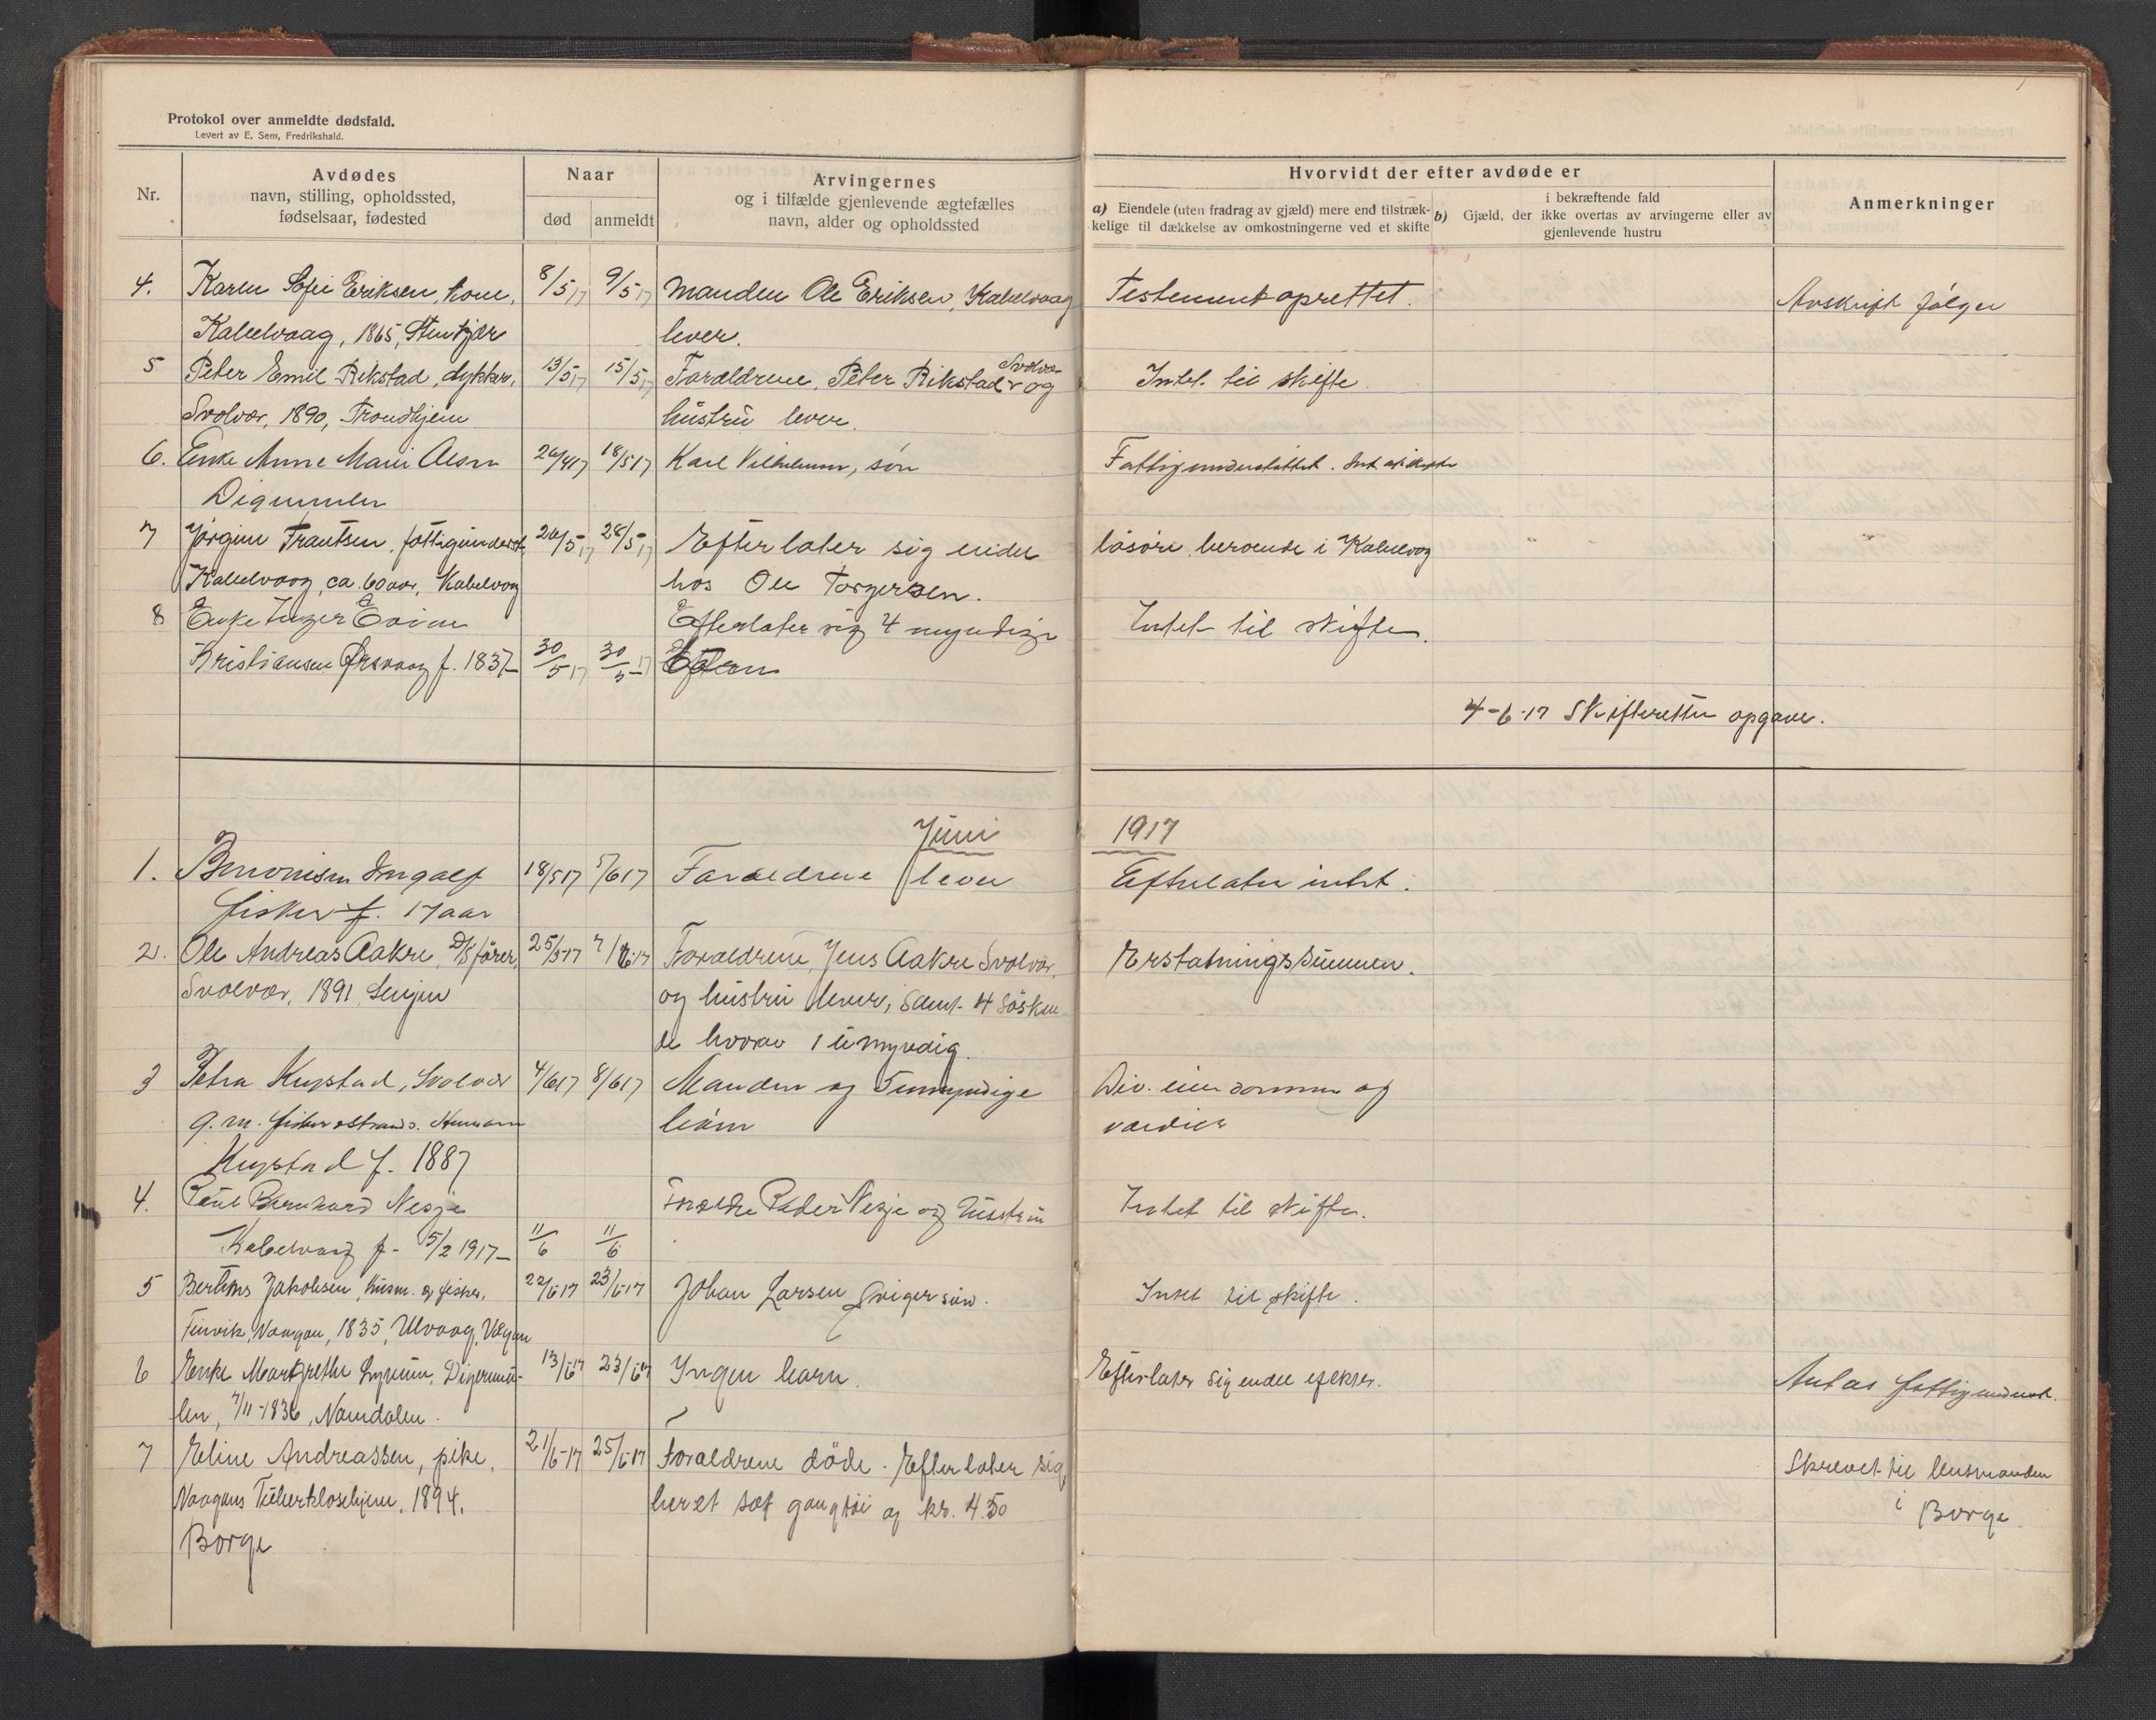 Protokol over anmeldte dødsfald.
Levert av E. Sem, Fredrikshald.
Nr.
Avdødes
navn, stilling, opholdssted,
fødselsaar, fødested
Naar
død
anmeldt
Arvingernes
og i tilfælde gjenlevende ægtefælles
navn, alder og opholdssted
Hvorvidt der efter avdøde er
a) Eiendele (uten fradrag av gjæld) mere end tilstræk-
kelige til dækkelse av omkostningerne ved et skifte
i bekræftende fald
b) Gjæld, der ikke overtas av arvingerne eller av
gjenlevende hustru
Anmerkninger
4. Karen Sofie Eriksen, kone, 8/5 17 9/5 17 Manden Ole Eriksen, Kabelvaag Testement oprettet. Avskrift følger
Kabelvaag, 1865, Stenkjær lever.
5 Peter Emil Rekstad, dykker, 13/5 17 15/5 17 Forældrene, Peter Rikstad Svolvær og Intet til skifte
Svolvær, 1890, Trondhjem hustru lever.
6. Enke Anne Marie Olsen 26/4 17 18/5 17 Karl Vilhelmsen, søn Fattigunderstøttet.
Digermulen
7 Jørgine Frantsen, fattigunderst. 26/5 17 28/5 17 Efterlater sig endel løsøre beroende i Kabelvog
Kabelvaag, ca. 60 aar, Kabelvog hos Ole Torgersen.
8 Enke Inger Evine Efterlater sig 4 myndige Intet til skifte.
Kristiansen Ørsvaag f. 1837 30/5 17 30/5 17
4-6-17 Skifteretten opgave.
Juni 1917
1. Benonisen Ingolf 18/5 17 5/6 17 Forældrene lever Efterlater intet.
fisker f. 17 aar
2. Ole Andreas Aakre, D/S fører, 25/5-17 7/6-17 Forældrene, Jens Aakre Svolvær, Erstatningssummen.
Svolvær, 1891 Senjen og hustru lever, samt 4 søsken
de hvorav 1 umyndig.
3 Petra Krystad, Svolvær 4/6 17 8/6 17 Manden og 5 umyndige Div. eiendommer og
g. m. børn værdier
Krystad f. 1887
4. Paul Bernhard Nesje Forældre Peder Nesje og hustru Intet til skifte.
Kabelvaag f. 5/2 1917 11/6 11/6
5 Bertinus Jakobsen, husm. og fisker, 22/6-17 23/6-17 Johan Larsen Svigersøn. Intet til skifte.
Finvik, Vaagan, 1835, Ulvaag, Vågan
6 Enke Margrethe Lynum, Digermu- 13/6-17 23/6-17 Ingen barn. Efterlater sig endel efekter. Antas fattigunderst.
len, 7/11-1836, Namdalen.
7 Eline Andreassen, pike, 21/6-17 25/6-17 Forældrene døde. Efterlater sig Skrevet til lensmanden
Vaagans Tuberklosehjem, 1894, her et sæt gangtøi og kr. 4.50 i Borge
Borge